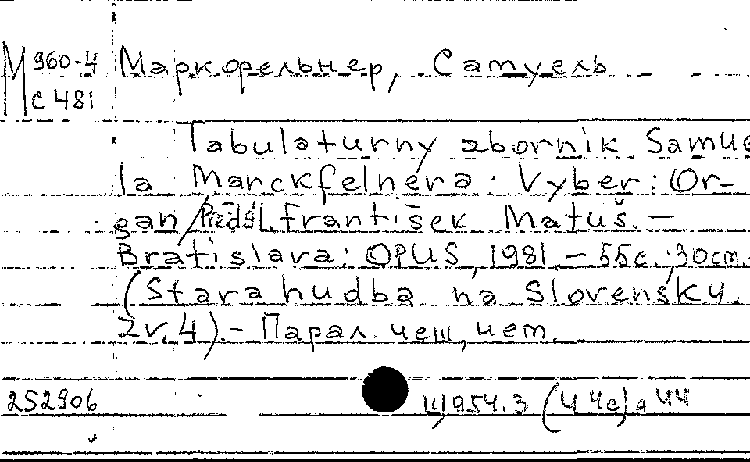 М 960-4 Маркфельнер, Самуель
с 481
Tabulaturny zbornik Samue
la Marckfelnera. Vyber: Or-
gan / Předsl. František Matuš. —
Bratislava: OPUS, 1981 — 55с. 30см.
(Stara hudba na Slovensku.
Zv. 4). — Парал. чеш, нем.
252906 Щ954.3 (4 Че) я 44